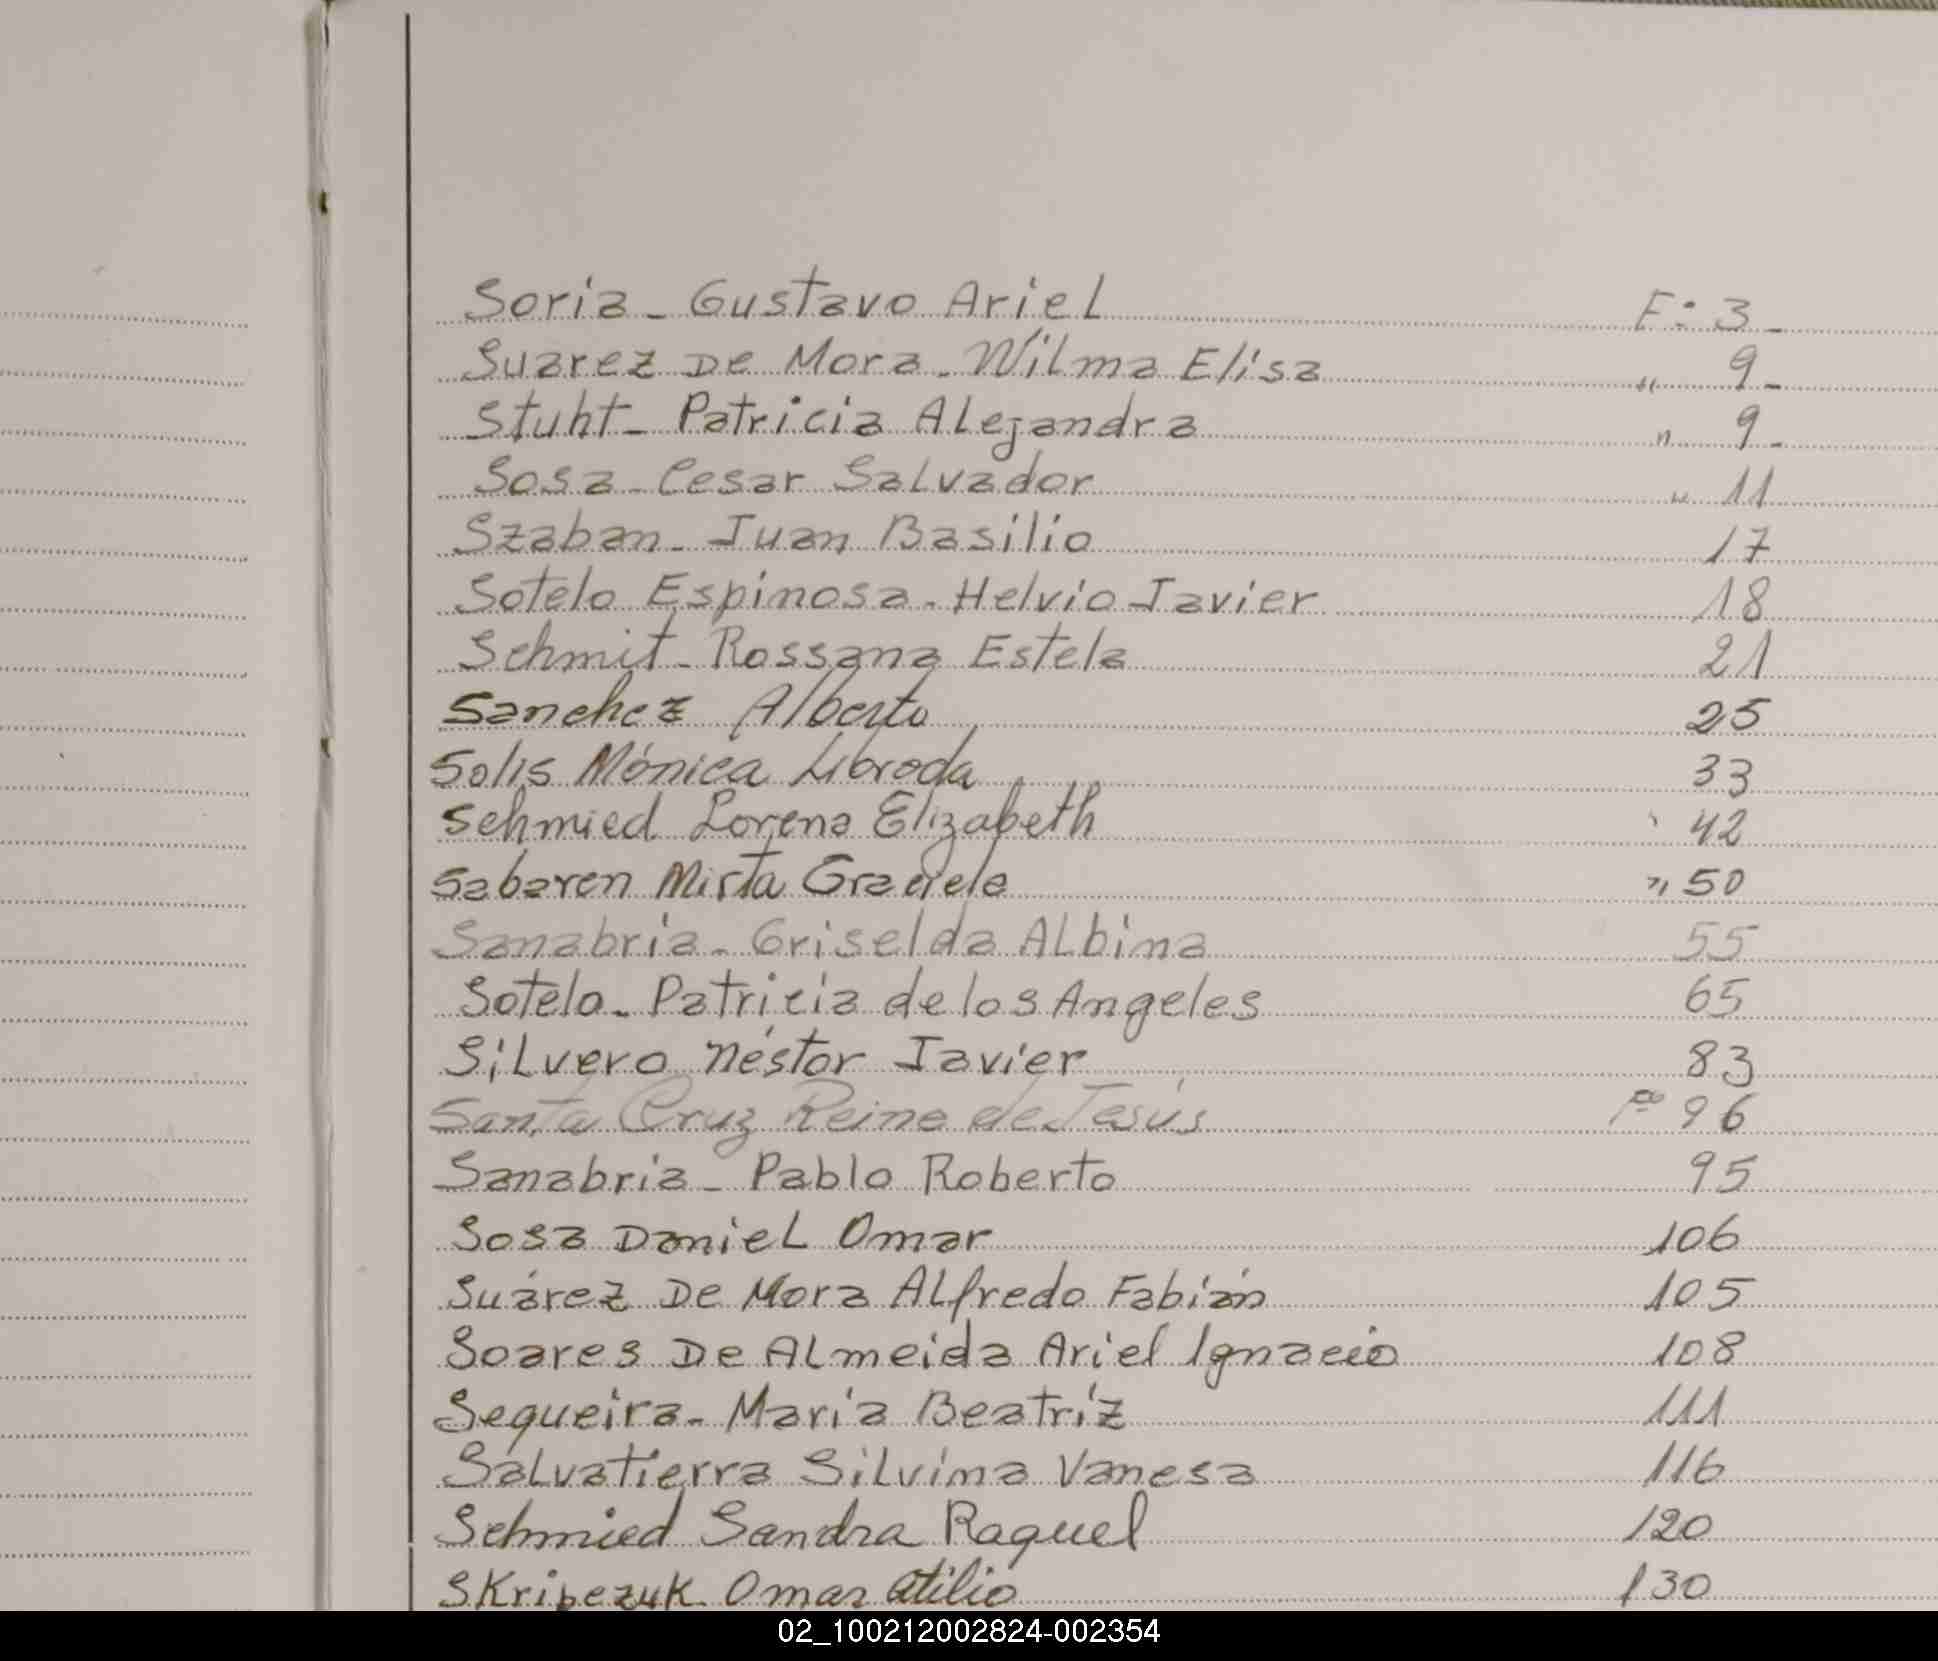 Soria - Gustavo Ariel F: 3 -
Suarez De Mora - Wilma Elisa " 9 -
Stuht - Patricia Alejandra " 9 -
Sosa - Cesar Salvador " 11
Szaban - Juan Basilio 17
Sotelo Espinosa - Helvio Javier 18
Schmit - Rossana Estela 21
Sanchez Alberto 25
Solis Mónica Librada 33
Schmied Lorena Elizabeth " 42
Sabaren Mirta Graciela " 50
Sanabria - Griselda Albina 55
Sotelo - Patricia de los Angeles 65
Silvero Néstor Javier 83
Santa Cruz Reina de Jesús Fº 96
Sanabria - Pablo Roberto 95
Sosa Daniel Omar 106
Suárez De Mora Alfredo Fabián 105
Soares De Almeida Ariel Ignacio 108
Sequeira - Maria Beatriz 111
Salvatierra Silvina Vanesa 116
Schmied Sandra Raquel 120
Skripczuk Omar Atilio 130
02_100212002824-002354